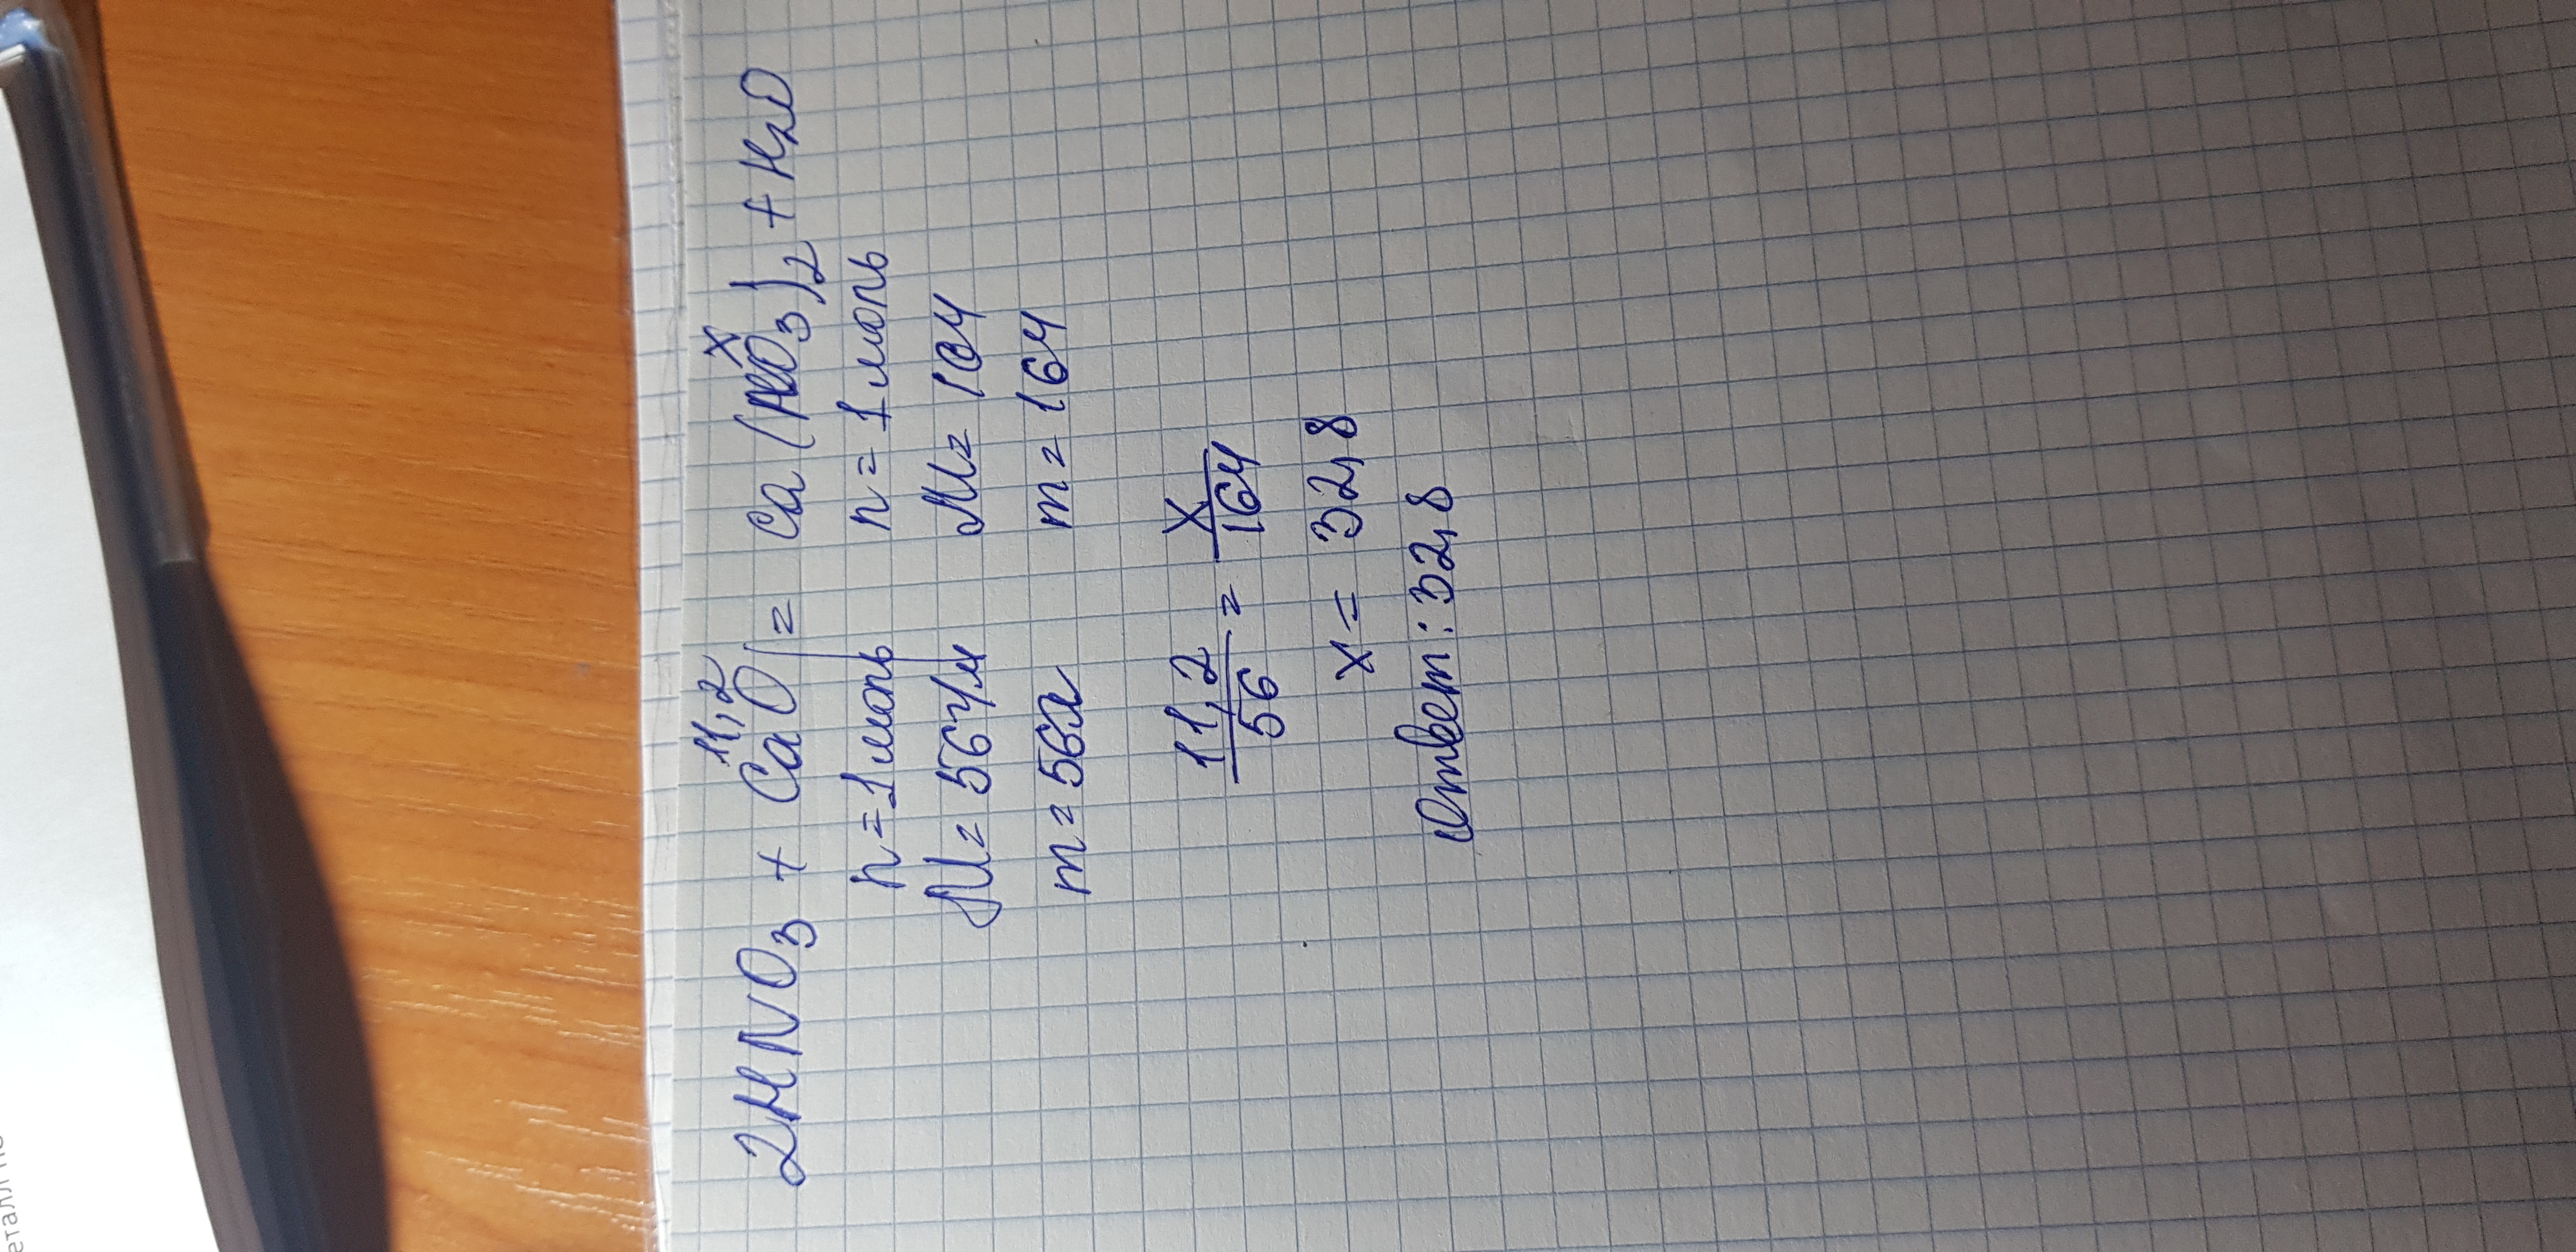 11,2 x
2HNO3 + CaO = Ca(NO3)2 + H2O
n = 1 моль n = 1 моль
M = 56 г/м M = 164
m = 56г m = 164
11,2/56 = x/164
x = 32,8
Ответ: 32,8